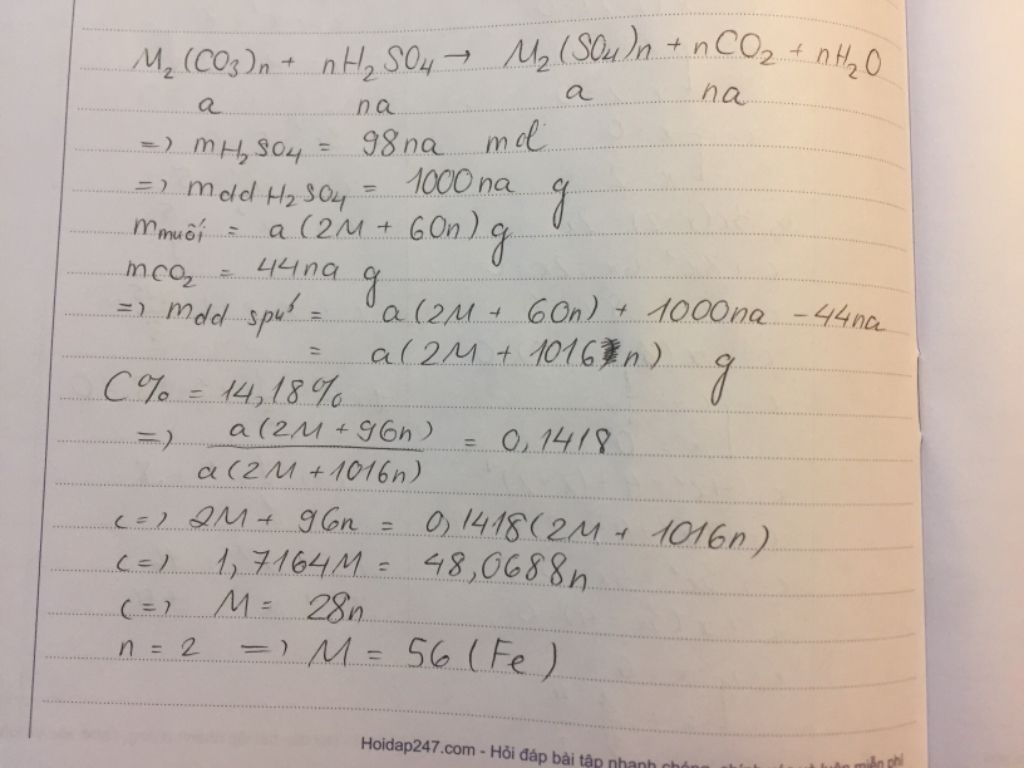 M₂(CO₃)n + nH₂SO₄ → M₂(SO₄)n + nCO₂ + nH₂O
a na a na
=> mH₂SO₄ = 98na md
=> mdd H₂SO₄ = 1000na g
mmuối = a(2M + 60n) g
mCO₂ = 44na g
=> mdd spư = a(2M + 60n) + 1000na - 44na
= a(2M + 1016n) g
C% = 14,18%
=> a(2M + 96n) / a(2M + 1016n) = 0,1418
<=> 2M + 96n = 0,1418(2M + 1016n)
<=> 1,7164M = 48,0688n
<=> M = 28n
n = 2 => M = 56 (Fe)
Hoidap247.com - Hỏi đáp bài tập nhanh chóng, chính xác và luôn miễn phí